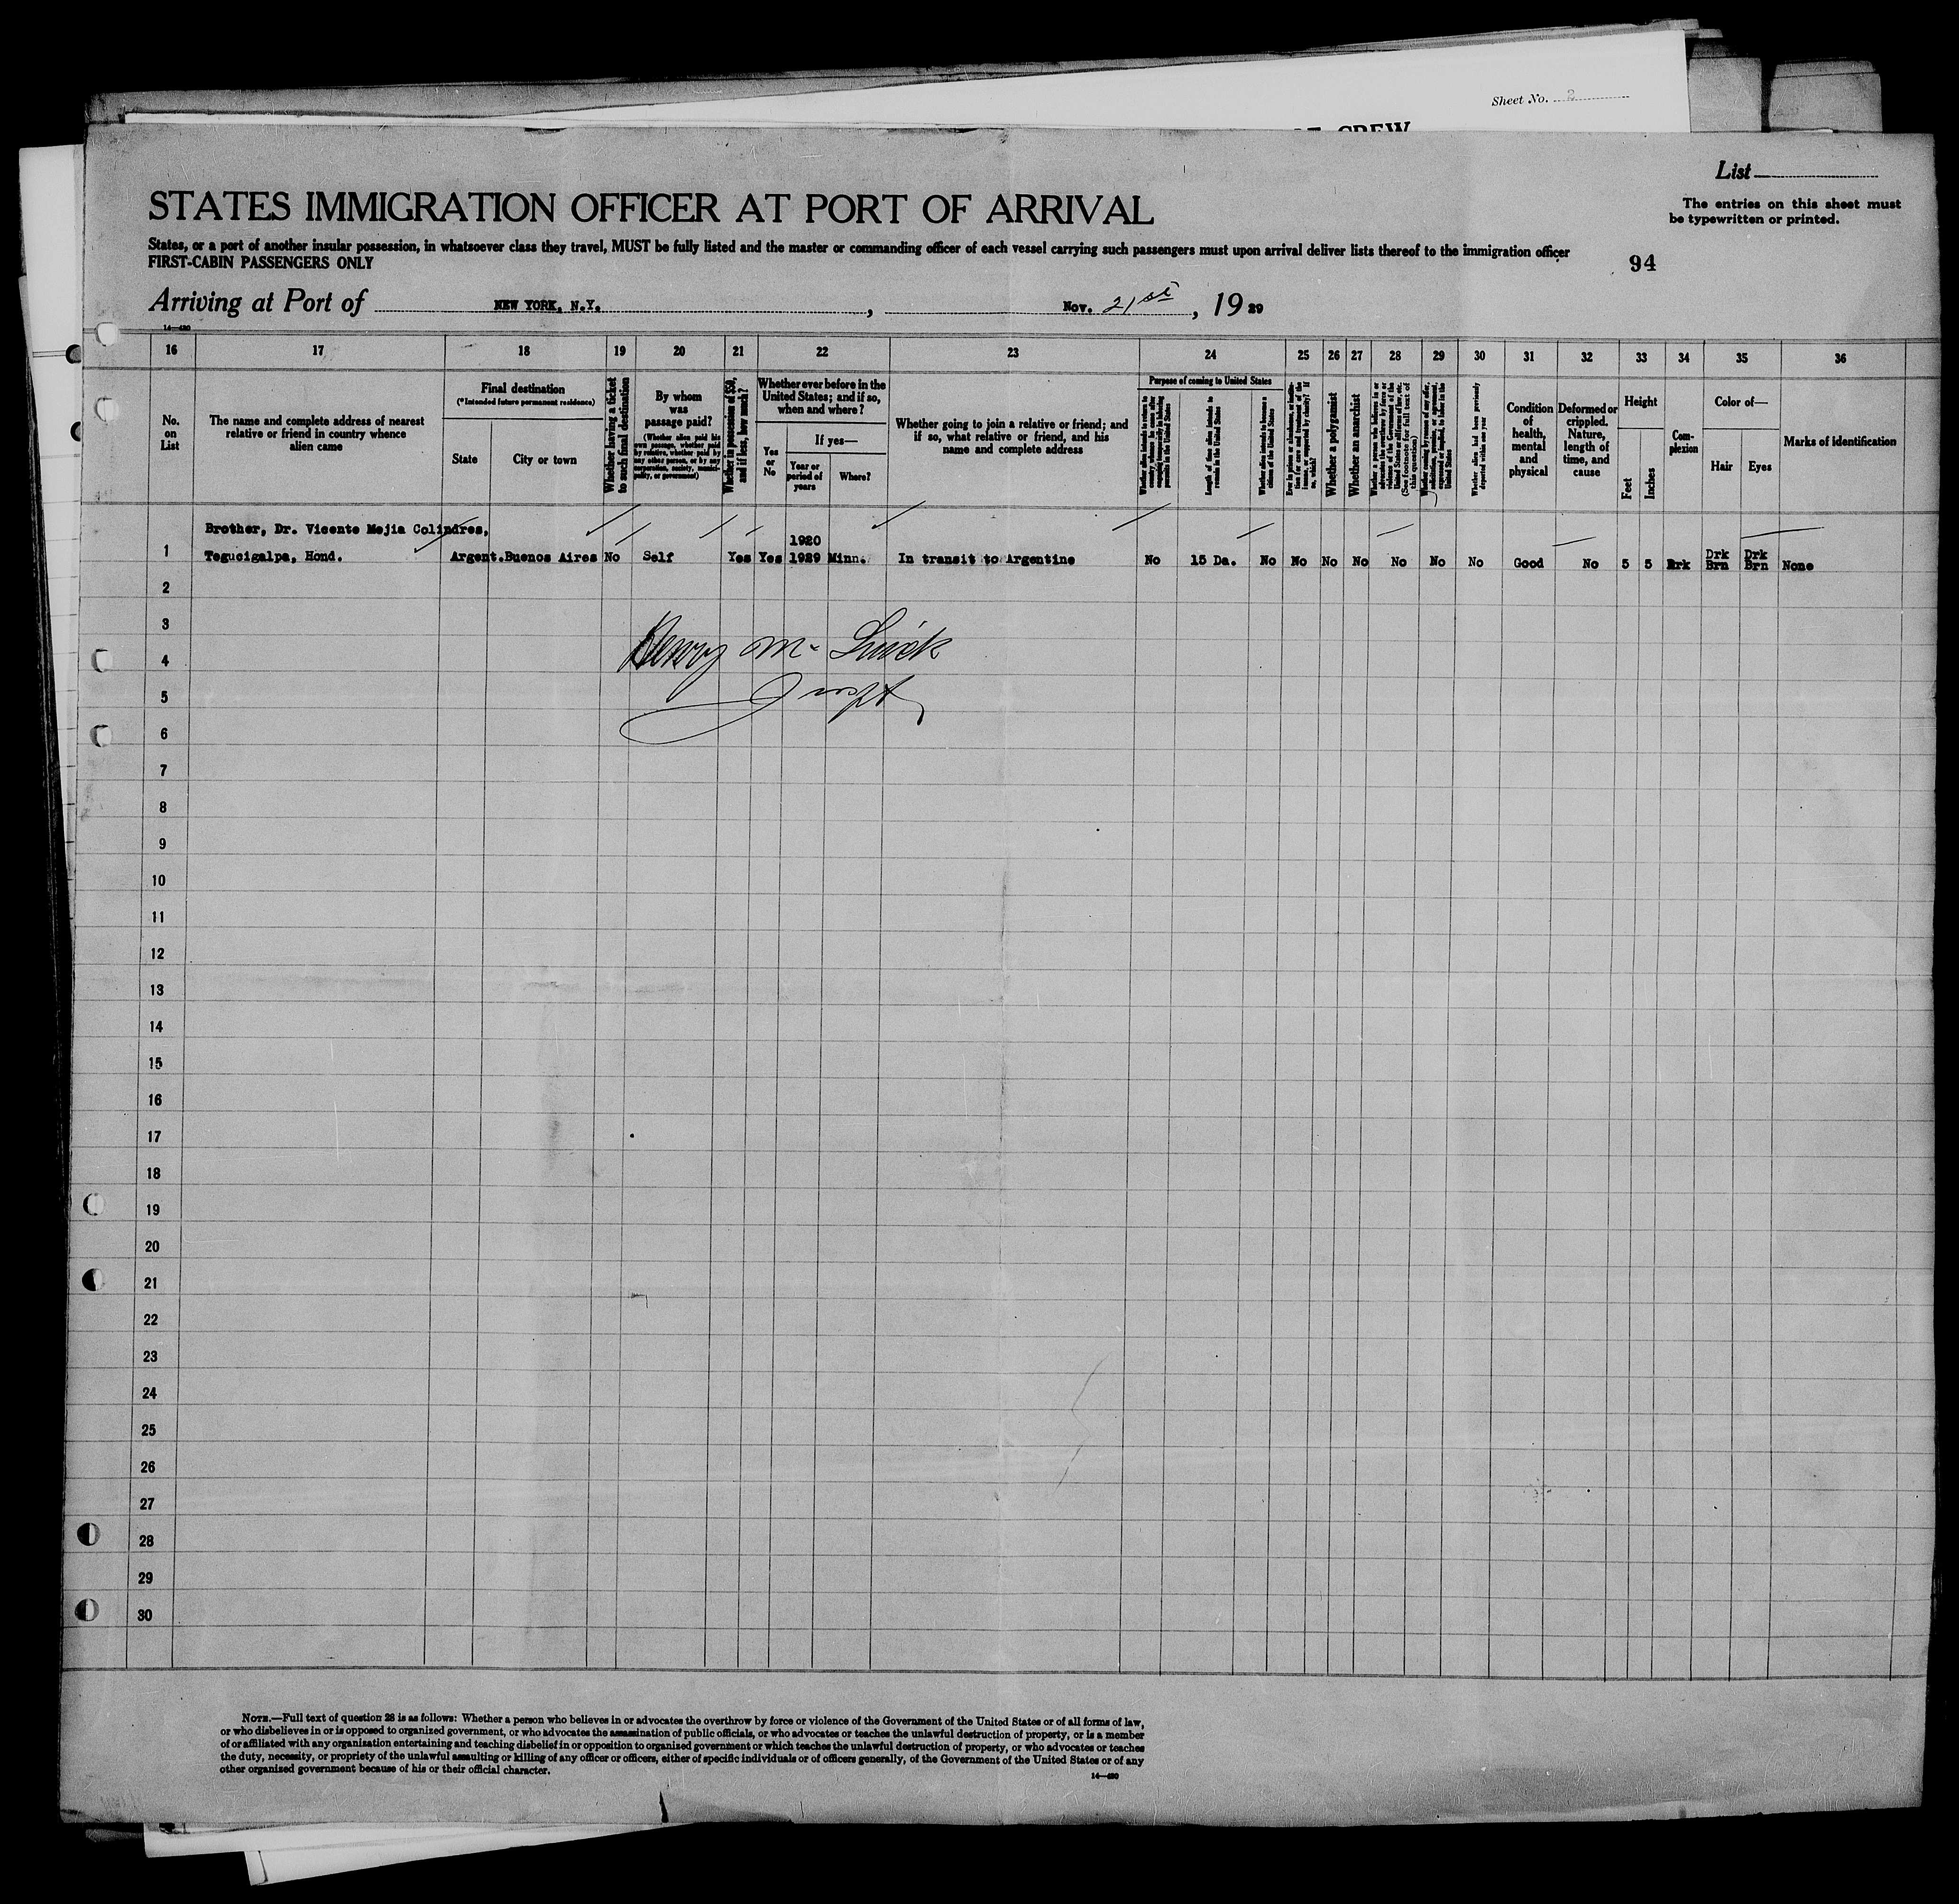 Sheet No. 2
OF CREW
List
STATES IMMIGRATION OFFICER AT PORT OF ARRIVAL
The entries on this sheet must
be typewritten or printed.
States, or a port of another insular possession, in whatsoever class they travel, MUST be fully listed and the master or commanding officer of each vessel carrying such passengers must upon arrival deliver lists thereof to the immigration officer
FIRST-CABIN PASSENGERS ONLY
94
Arriving at Port of NEW YORK, N.Y., Nov. 21st, 1929
14—430
16 17 18 19 20 21 22 23 24 25 26 27 28 29 30 31 32 33 34 35 36
No.
on
List
The name and complete address of nearest
relative or friend in country whence
alien came
Final destination
(*Intended future permanent residence)
State
City or town
Whether having a ticket
to such final destination
By whom
was
passage paid?
(Whether alien paid his
own passage, whether paid
by relative, whether paid by
any other person, or by any
corporation, society, munici-
pality, or government)
Whether in possession of $50,
and if less, how much?
Whether ever before in the
United States; and if so,
when and where?
Yes
or
No
If yes—
Year or
period of
years
Where?
Whether going to join a relative or friend; and
if so, what relative or friend, and his
name and complete address
Purpose of coming to United States
Whether alien intends to return to
country whence he came after
engaging temporarily in laboring
pursuits in the United States
Length of time alien intends to
remain in the United States
Whether alien intends to become a
citizen of the United States
Whether a polygamist
Whether an anarchist
Whether alien had been previously
deported within one year
Condition
of
health,
mental
and
physical
Deformed or
crippled.
Nature,
length of
time, and
cause
Height
Feet
Inches
Com-
plexion
Color of—
Hair
Eyes
Marks of identification
Brother, Dr. Vicente Mejia Colindres,
1 Tegucigalpa, Hond. Argent. Buenos Aires No Self Yes Yes 1920 1929 Minn. In transit to Argentine No 15 Da. No No No No No No No Good No 5 5 Drk Drk Brn Drk Brn None
2
3
Henry M. Quick
4
Inspt
5
6
7
8
9
10
11
12
13
14
15
16
17
18
19
20
21
22
23
24
25
26
27
28
29
30
NOTE.—Full text of question 28 is as follows: Whether a person who believes in or advocates the overthrow by force or violence of the Government of the United States or of all forms of law,
or who disbelieves in or is opposed to organized government, or who advocates the assassination of public officials, or who advocates or teaches the unlawful destruction of property, or is a member
of or affiliated with any organization entertaining and teaching disbelief in or opposition to organized government or which teaches the unlawful destruction of property, or who advocates or teaches
the duty, necessity, or propriety of the unlawful assaulting or killing of any officer or officers, either of specific individuals or of officers generally, of the Government of the United States or of any
other organized government because of his or their official character.
14—430